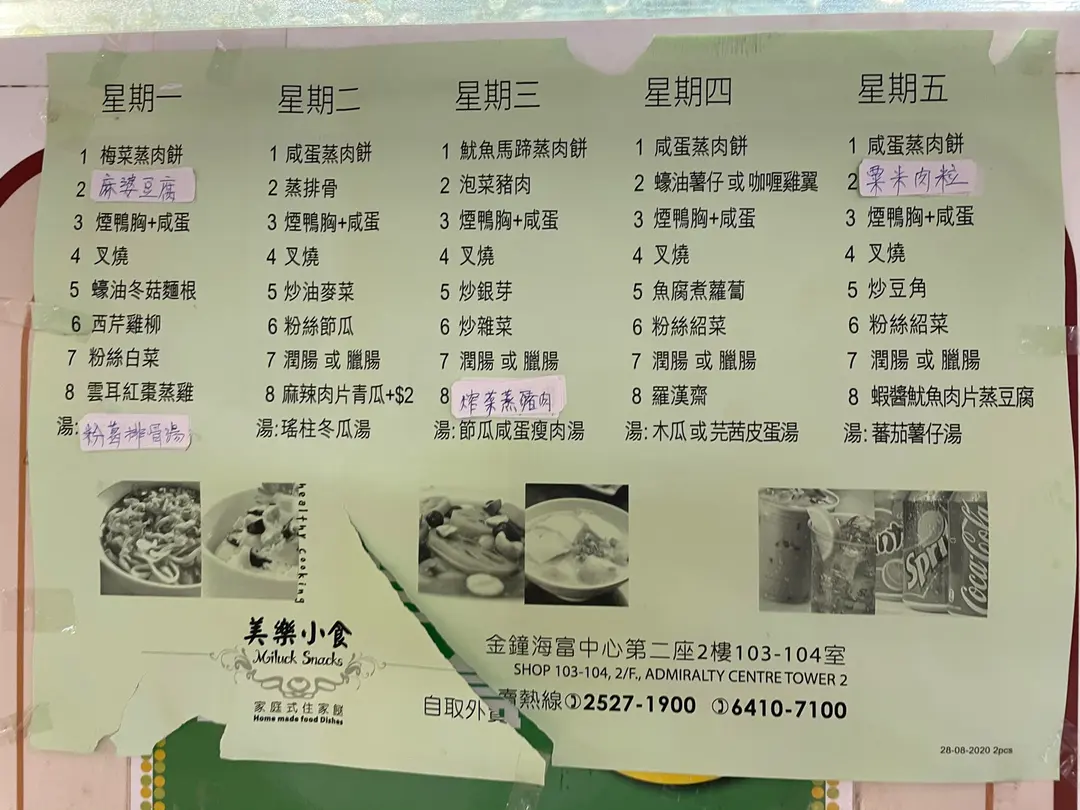 星期一
1 梅菜蒸肉餅
2 麻婆豆腐
3 煙鴨胸+咸蛋
4 叉燒
5 蠔油冬菇麵根
6 西芹雞柳
7 粉絲白菜
8 雲耳紅棗蒸雞
湯: 粉葛排骨湯
星期二
1 咸蛋蒸肉餅
2 蒸排骨
3 煙鴨胸+咸蛋
4 叉燒
5 炒油麥菜
6 粉絲節瓜
7 潤腸 或 臘腸
8 麻辣肉片青瓜+$2
湯: 瑤柱冬瓜湯
星期三
1 魷魚馬蹄蒸肉餅
2 泡菜豬肉
3 煙鴨胸+咸蛋
4 叉燒
5 炒銀芽
6 炒雜菜
7 潤腸 或 臘腸
8 炸菜蒸豬肉
湯: 節瓜咸蛋瘦肉湯
星期四
1 咸蛋蒸肉餅
2 蠔油薯仔 或 咖喱雞翼
3 煙鴨胸+咸蛋
4 叉燒
5 魚腐煮蘿蔔
6 粉絲紹菜
7 潤腸 或 臘腸
8 羅漢齋
湯: 木瓜 或 芫茜皮蛋湯
星期五
1 咸蛋蒸肉餅
2 粟米肉粒
3 煙鴨胸+咸蛋
4 叉燒
5 炒豆角
6 粉絲紹菜
7 潤腸 或 臘腸
8 蝦醬魷魚肉片蒸豆腐
湯: 蕃茄薯仔湯
healthy cooking
Spri
Coca-Cola
美樂小食
Miluck Snacks
家庭式住家餸
Home made food Dishes
金鐘海富中心第二座2樓103-104室
SHOP 103-104, 2/F., ADMIRALTY CENTRE TOWER 2
自取外賣熱線 2527-1900 6410-7100
28-08-2020 2pcs